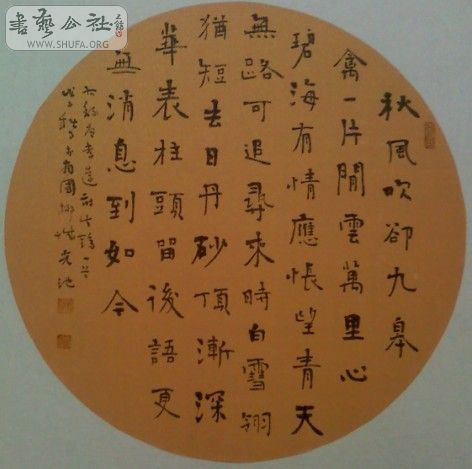 書藝公社
WWW.SHUFA.ORG
秋風吹卻九皋
禽一片閒雲萬里心
碧海有情應悵望青天
無路可追尋來時白雪翎
猶短去日丹砂頂漸深
華表柱頭留後語更
無消息到如今
唐李遠鶴一首